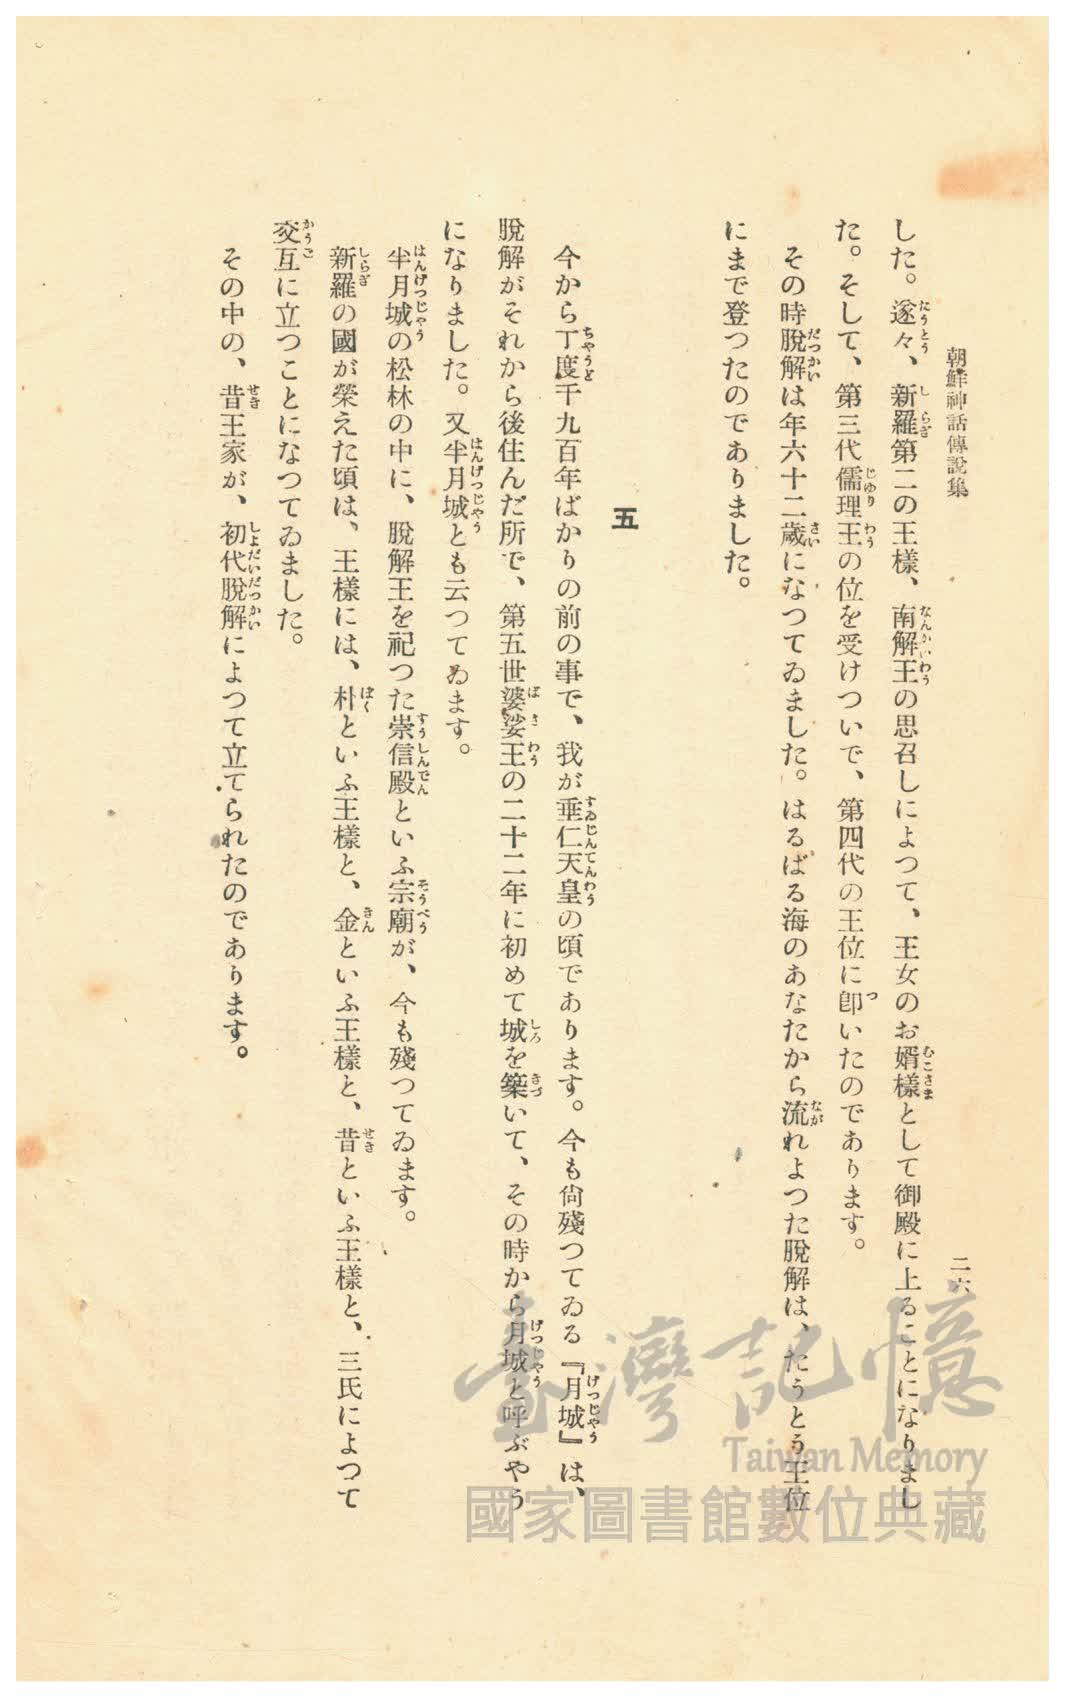 朝鮮神話傳說集
二六
した。遂々、新羅第二の王樣、南解王の思召しによつて、王女のお婿樣として御殿に上ることになりまし
た。そして、第三代儒理王の位を受けついで、第四代の王位に卽いたのであります。
その時脫解は年六十二歲になつてゐました。はるばる海のあなたから流れよつた脫解は、たうとう王位
にまで登つたのでありました。
五
今から丁度千九百年ばかりの前の事で、我が垂仁天皇の頃であります。今も尙殘つてゐる『月城』は、
脫解がそれから後住んだ所で、第五世婆娑王の二十二年に初めて城を築いて、その時から月城と呼ぶやう
になりました。又半月城とも云つてゐます。
半月城の松林の中に、脫解王を祀つた崇信殿といふ宗廟が、今も殘つてゐます。
新羅の國が榮えた頃は、王樣には、朴といふ王樣と、金といふ王樣と、昔といふ王樣と、三氏によつて
交互に立つことになつてゐました。
その中の、昔王家が、初代脫解によつて立てられたのであります。
臺灣記憶
Taiwan Memory
國家圖書館數位典藏